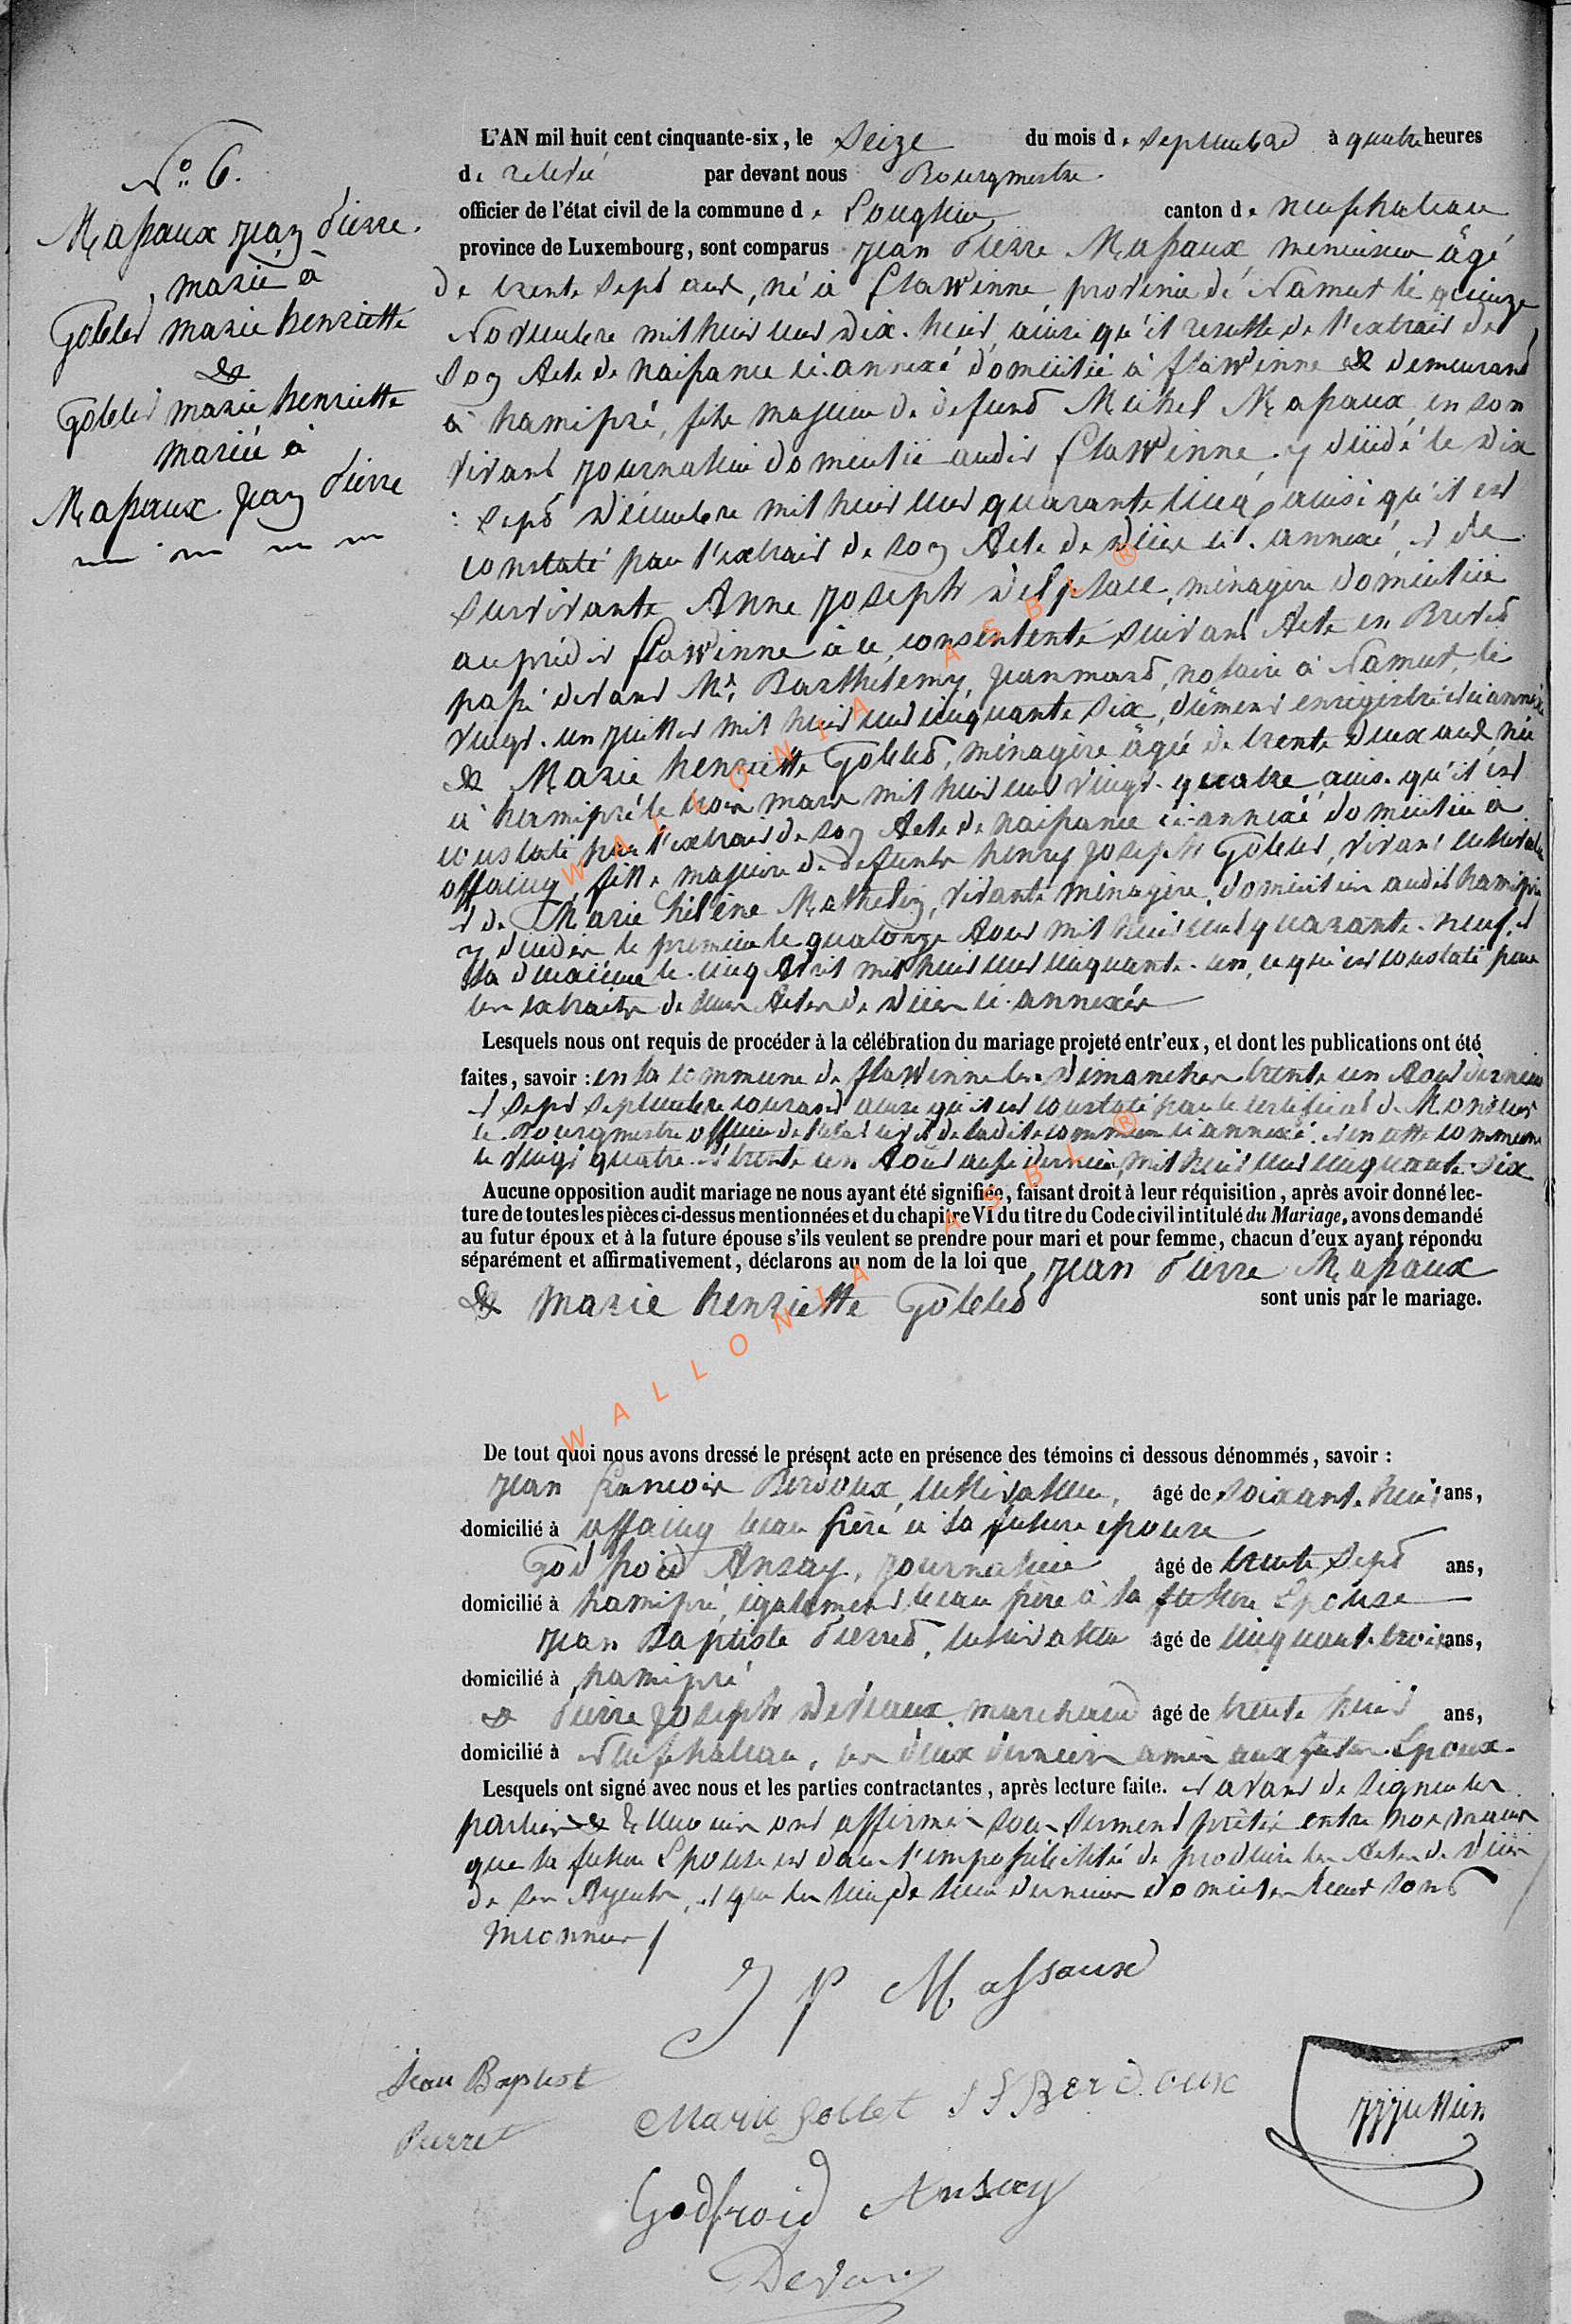 N° 6.
Massaux Jean Pierre.
marié à
Goblet marie henriette
&
Goblet marie henriette
mariée à
Massaux Jean Pierre
L'AN mil huit cent cinquante-six, le Seize du mois de Septembre à quatre heures
de relevée par devant nous Bourgmestre
officier de l'état civil de la commune de Longlier canton de neufchateau
province de Luxembourg, sont comparus Jean Pierre Massaux, menuisier âgé
de trente Sept ans, né à flawinne, province de Namur le quinze
Novembre mil huit cent Dix-huit, ainsi qu'il resulte de l'extrait de
Son Acte de naissance ci-annexé, domicilié à flawinne & demeurant
à hamipré, fils majeur de defunt Michel Massaux, en son
vivant journalier domicilié audit flawinne, y décédé le Dix
Sept Décembre mil huit cent quarante cinq, ainsi qu'il est
constaté par l'extrait de son Acte de décès ci-annexé, et de
survivante Anne Joseph Delplace, ménagère domiciliée
au prédit flawinne à ce consentente suivant Acte en Brevet
passé devant Me Barthelemy Jeanmart, notaire à Namur, le
vingt-un juillet mil huit cent cinquante six, dûment enregistré et ci annexé
& Marie henriette Goblet, ménagère âgée de trente deux ans née
à hamipré le trois mars mil huit cent vingt-quatre ainsi qu'il est
constaté par l'extrait de son Acte de naissance ci-annexé, domiciliée à
offaing, fille majeure de defunts henry Joseph Goblet, vivant cultivateur
et de Marie hélène Mathelin, vivante ménagère, domiciliés audit hamipré
y décédés le premier le quatorze Aout mil huit cent quarante-neuf, et
la deuxième le cinq Avril mil huit cent cinquante-un, ce qui est constaté par
les extraits de leurs Actes de décès ci-annexés
Lesquels nous ont requis de procéder à la célébration du mariage projeté entr'eux, et dont les publications ont été
faites, savoir : en la commune de flawinne les Dimanches trente un Aout dernier
et Sept Septembre courant ainsi qu'il est constaté par le certificat de Monsieur
le Bourgmestre officier de l'état civil de ladite commune ci annexé. et en cette commune
le vingt quatre & trente un Août aussi dernier, mil huit cent cinquante-six
Aucune opposition audit mariage ne nous ayant été signifiée, faisant droit à leur réquisition, après avoir donné lec-
ture de toutes les pièces ci-dessus mentionnées et du chapitre VI du titre du Code civil intitulé du Mariage, avons demandé
au futur époux et à la future épouse s'ils veulent se prendre pour mari et pour femme, chacun d'eux ayant répondu
séparément et affirmativement, déclarons au nom de la loi que Jean Pierre Massaux
& Marie henriette Goblet sont unis par le mariage.
De tout quoi nous avons dressé le présent acte en présence des témoins ci dessous dénommés, savoir :
Jean francois Berdoux, cultivateur, âgé de soixante huit ans,
domicilié à offaing beau frère à la future épouse
Godfroid Ansay, journalier âgé de trente Sept ans,
domicilié à hamipré, également beau frère à la future Epouse
Jean Baptiste Pierret, cultivateur âgé de cinquante trois ans,
domicilié à hamipré
& Pierre Joseph Devaux, marchand âgé de trente huit ans,
domicilié à Neufchateau, les deux derniers amis aux futurs Epoux.
Lesquels ont signé avec nous et les parties contractantes, après lecture faite. et avant de signer les
parties & témoins ont affirmé sous serment prêté entre nos mains
que la future Epouse est dans l'impossibilité de produire les Actes de décès
de ses Ayeuls, et que les lieux de leurs derniers domiciles leur sont
inconnus
J P Massaux
Jean Baptist
Pierret
Marie Goblet J F Berdoux
Godfroid Ansay
Devaux
WALLONIA ASBL ®
WALLONIA ASBL ®